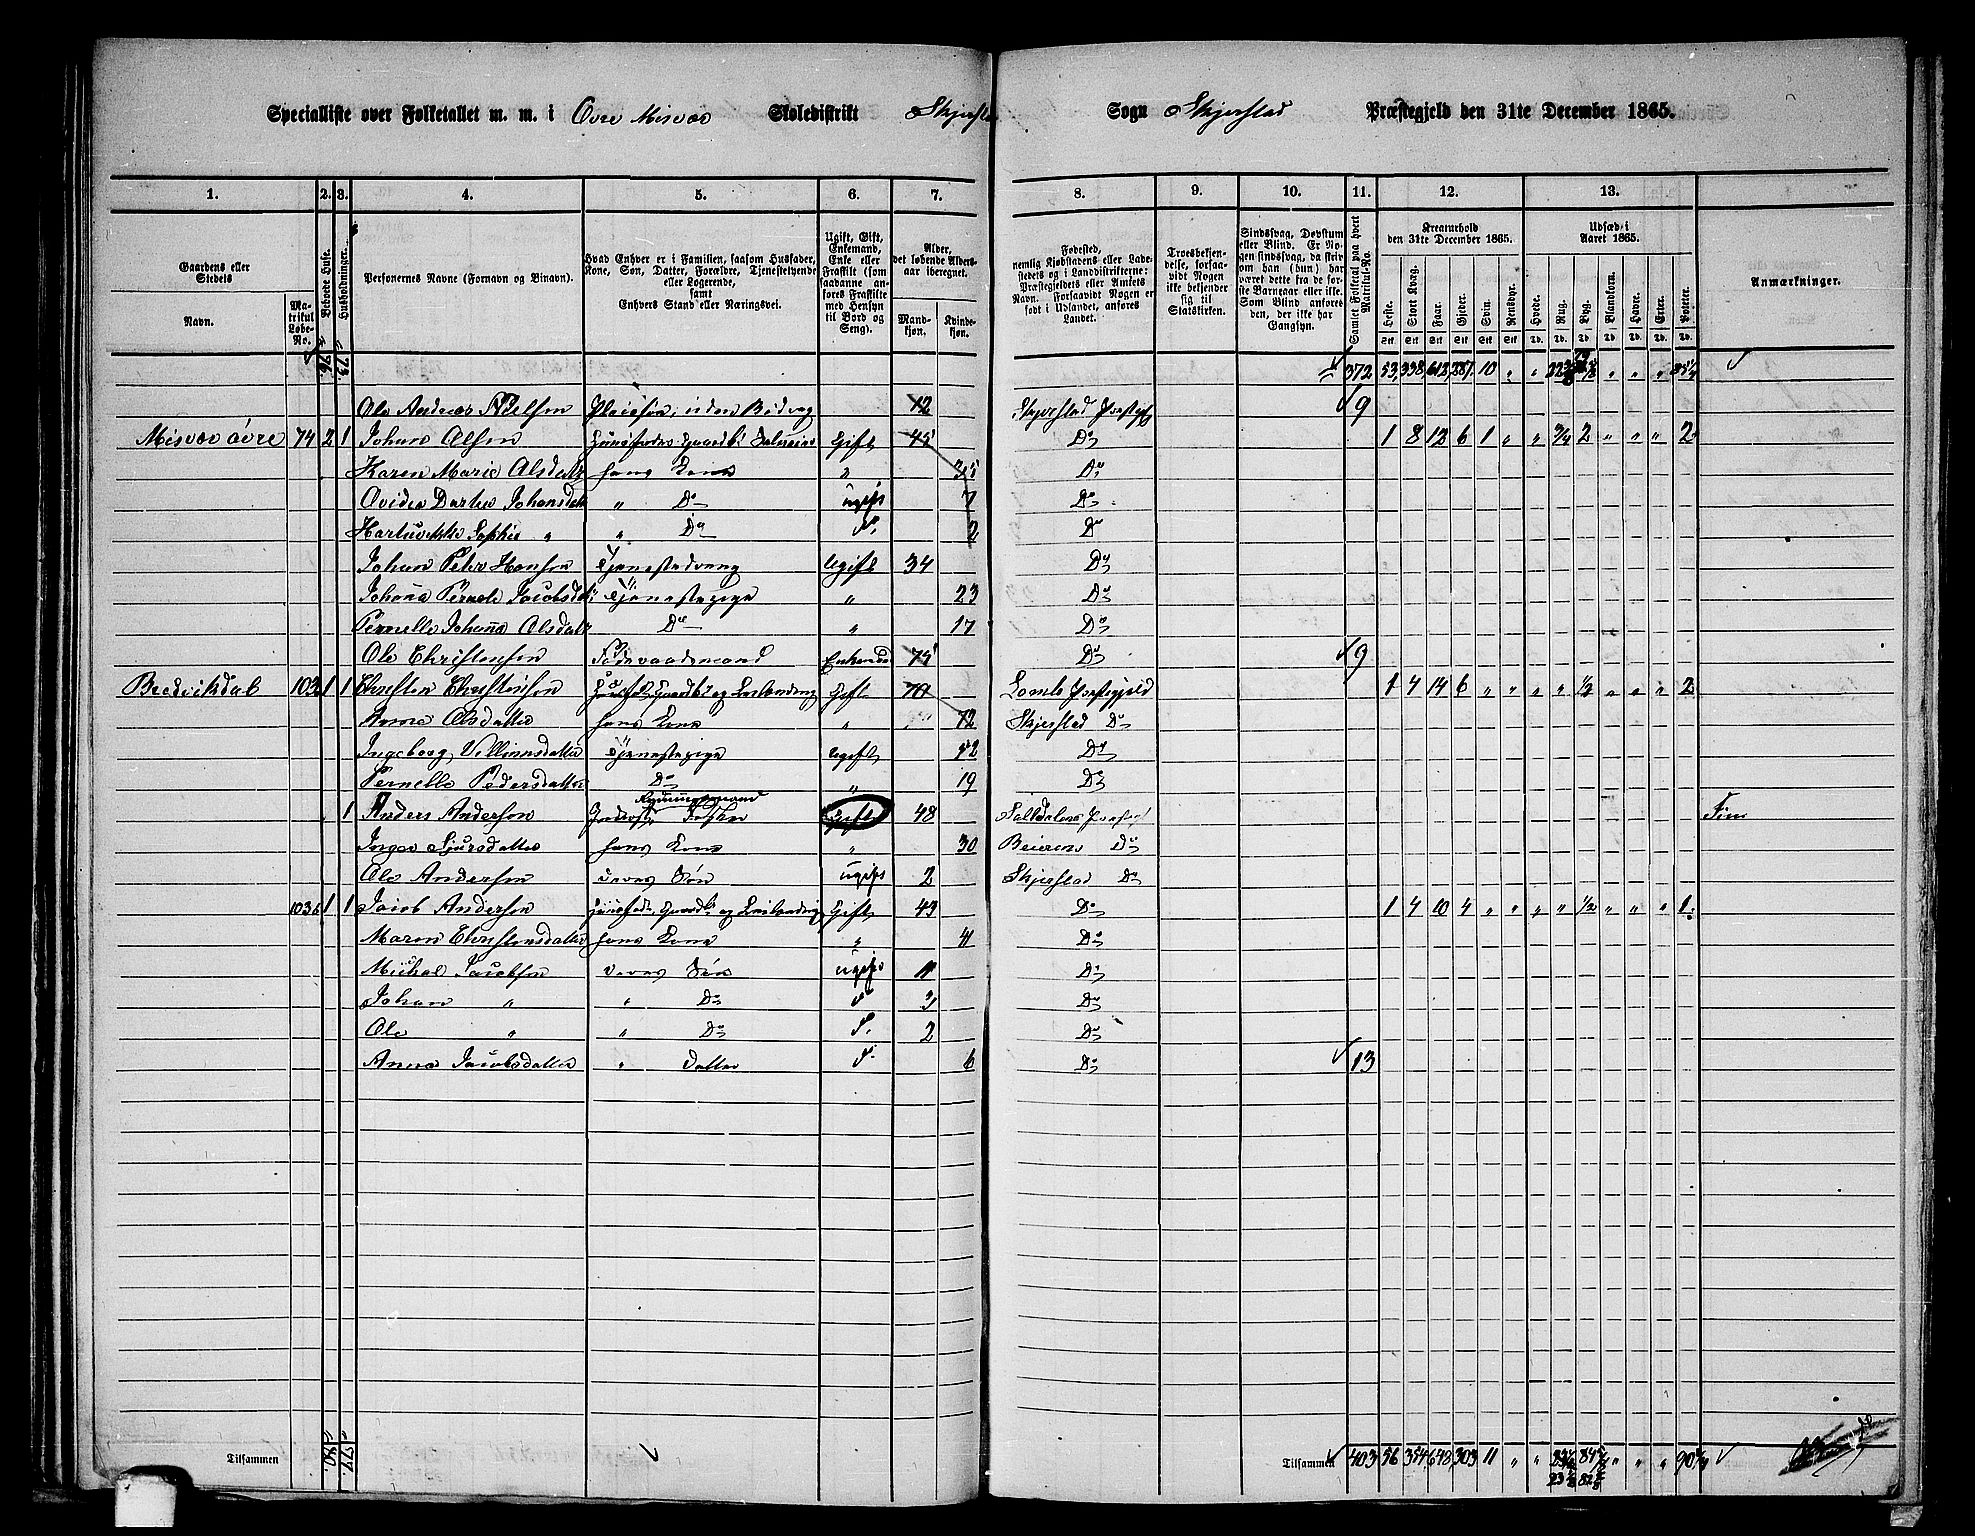 Specialliste over Folketallet m. m. i Övre Misvær Skoledistrikt Skjerstad Sogn Skjerstad Præstegjeld den 31te December 1865.
1. 2. 3. 4. 5. 6. 7. 8. 9. 10. 11. 12. 13.
Gaardens eller Stedets Navn.
Matrikul Løbe-No.
Beboede Huse.
Husholdninger.
Personernes Navne (Fornavn og Tilnavn).
Hvad Enhver er i Familien, saasom Husfader, Kone, Søn, Datter, Forældre, Tjenestetyende eller Logerende, samt Enhvers Stand eller Næringsvei.
Ugift, Gift, Enkemand, Enke eller Fraskilt (som saadanne anføres Fraskilte med Hensyn til Bord og Seng).
Alder, det løbende Alders-aar iberegnet.
Mandkjøn. Kvindekjøn.
Fødested, nemlig Kjøbstadens eller Ladestedets og i Landdistrikterne: Præstegjeldets eller Amtets Navn. Forsaavidt Nogen er født i Udlandet, anføres Landet.
Troesbekjendelse, forsaavidt Nogen ikke bekjender sig til Statskirken.
Sindssvag, Døvstum eller Blind. Er Nogen sindssvag, da skrives om han (hun) har været dette fra de første Barneaar eller ikke. Som Blind anføres den, der ikke har Gangsyn.
Samlet Folketal paa hvert Matrikul-No.
Kreaturhold den 31te December 1865.
Heste. Stort Kvæg. Faar. Gjeder. Svin. Rensdyr.
Udsæd i Aaret 1865.
Hvede. Rug. Byg. Blandkorn. Havre. Erter. Poteter.
Anmærkninger.
76. 73. 372 53, 338, 612, 287, 10 " "
Ole Andreas Nielsen Pleiesøn, 12 Skjerstad Præstegj 9
Misvær övre 74 2 1 Johan Olsen Gift 45 Do 1 8 12 6 1 " " 3/4 2 " " " 2
Karen Marie Olsdatr hans Kone " Do
Ovidia Dorthea Johansdatr " Do ugift 7 Do
Sophie " " Do 2 Do
Johan Peter Hansen Tjenestedreng Ugift 34 Do
Johana Pernele Jacobsdatr Tjenestepige " 23 Do
Pernelle Johana Olsdatr Do " 17 Do
Ole Christensen Föderaadsmand Enkemd 75 Do 9
Bredvikdal 103 1 1 Christen Christensen Husfader, Gaardbr og Leilænding Gift 70 Lomb Præstegjeld 1 4 14 6 " " " " 1/2 " " " 2
Anne Olsdatter hans Kone " 72 Skjerstad Do
Ingeborg Vellumsdatter Tjenestepige Ugift 42 Do
Pernelle Pedersdatter Do " 19 Do
1 Anders Andersen Inderst Gift 48 Saltdalens Præstegj
Inger Sjursdatter hans Kone " 30 Beieren Do
Ole Andersen deres Søn ugift 2 Skjerstad Do
103b 1 1 Jacob Andersen Husfader, Gaardb og Leilænding Gift 43 Do 1 4 10 4 " " " " 1/2 " " " 1
Maren Christensdatter hans Kone " 41 Do
Michal Jacobsen deres Søn ugift 11 Do
Johan " " Do 3 Do
Ole " " Do 2 Do
Anna Jacobsdatter " Datter 6 Do 13
Tilsammen 80. 77. Tilsammen 403 56 354 648 303 11 " "